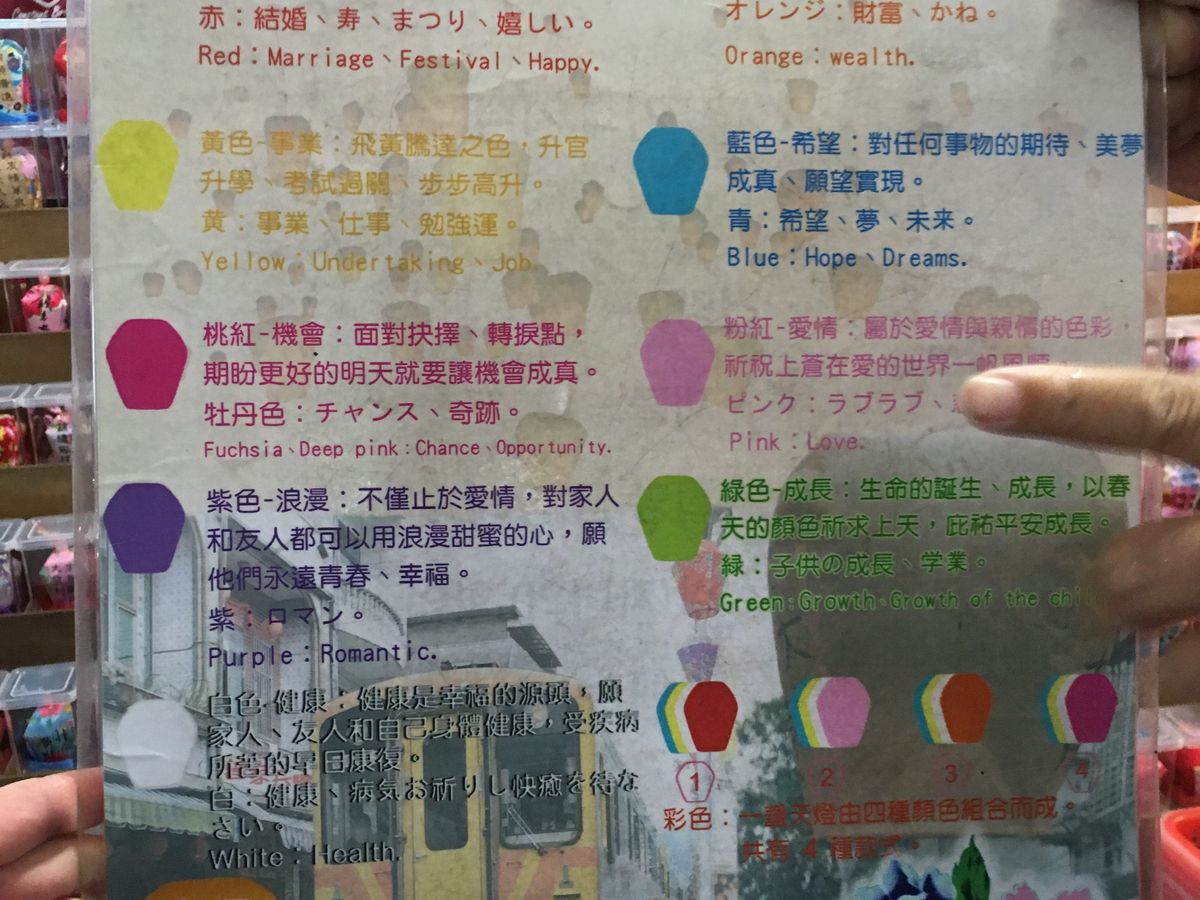 赤：結婚、寿、まつり、嬉しい。
Red：Marriage、Festival、Happy.
オレンジ：財富、かね。
Orange：wealth.
黃色-事業：飛黃騰達之色，升官
升學、考試過關、步步高升。
黄：事業、仕事、勉強運。
Yellow：Undertaking、Job.
藍色-希望：對任何事物的期待、美夢
成真、願望實現。
青：希望、夢、未来。
Blue：Hope、Dreams.
桃紅-機會：面對抉擇、轉捩點，
期盼更好的明天就要讓機會成真。
牡丹色：チャンス、奇跡。
Fuchsia、Deep pink：Chance、Opportunity.
粉紅-愛情：屬於愛情與親情的色彩，
祈祝上蒼在愛的世界一帆風順。
ピンク：ラブラブ、
Pink：Love.
紫色-浪漫：不僅止於愛情，對家人
和友人都可以用浪漫甜蜜的心，願
他們永遠青春、幸福。
紫：ロマン。
Purple：Romantic.
綠色-成長：生命的誕生、成長，以春
天的顏色祈求上天，庇祐平安成長。
緑：子供の成長、学業。
Green：Growth、Growth of the
白色-健康：健康是幸福的源頭，願
家人、友人和自己身體健康，受疾病
所苦的早日康復。
白：健康、病気お祈りし快癒を待な
さい。
White：Health.
1 2 3 4
彩色：一盞天燈由四種顏色組合而成。
共有 4 種款式。